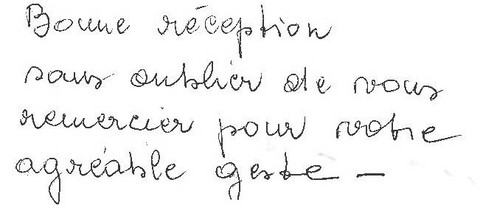 Bonne réception
sans oublier de vous
remercier pour votre
agréable geste —